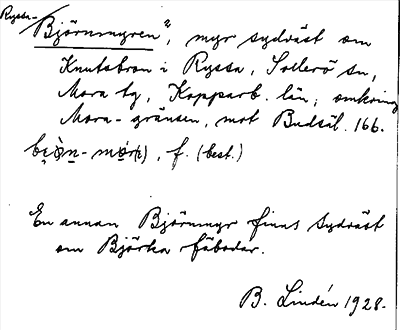 Ryssa-
"Björnmyren", myr sydväst om
Knutsbron i Ryssa, Sollerö sn,
Mora tg, Kopparb. län; omkring
Mora-gränsen, mot Budsäl. 166.
f. (best.)
En annan Björnmyr finns sydväst
om Björka fäbodar.
B. Lindén 1928.